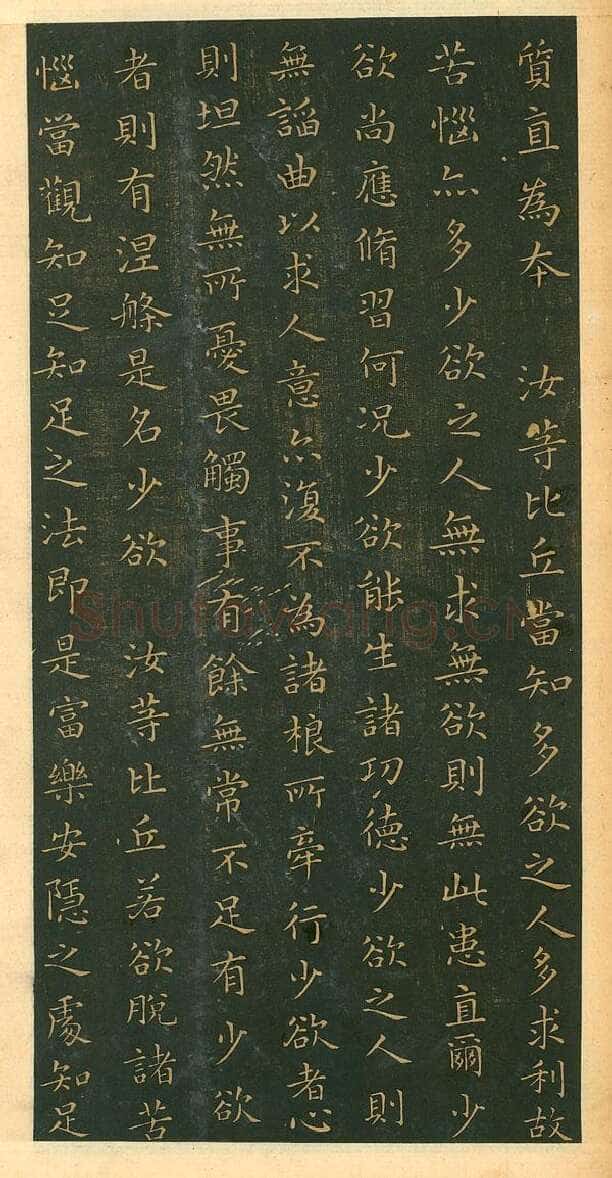 質直為本　汝等比丘當知多欲之人多求利故
苦惱亦多少欲之人無求無欲則無此患直爾少
欲尚應脩習何況少欲能生諸功德少欲之人則
無諂曲以求人意亦復不為諸根所牽行少欲者心
則坦然無所憂畏觸事有餘無常不足有少欲
者則有涅槃是名少欲　汝等比丘若欲脫諸苦
惱當觀知足知足之法即是富樂安隱之處知足
Shufawang.CN